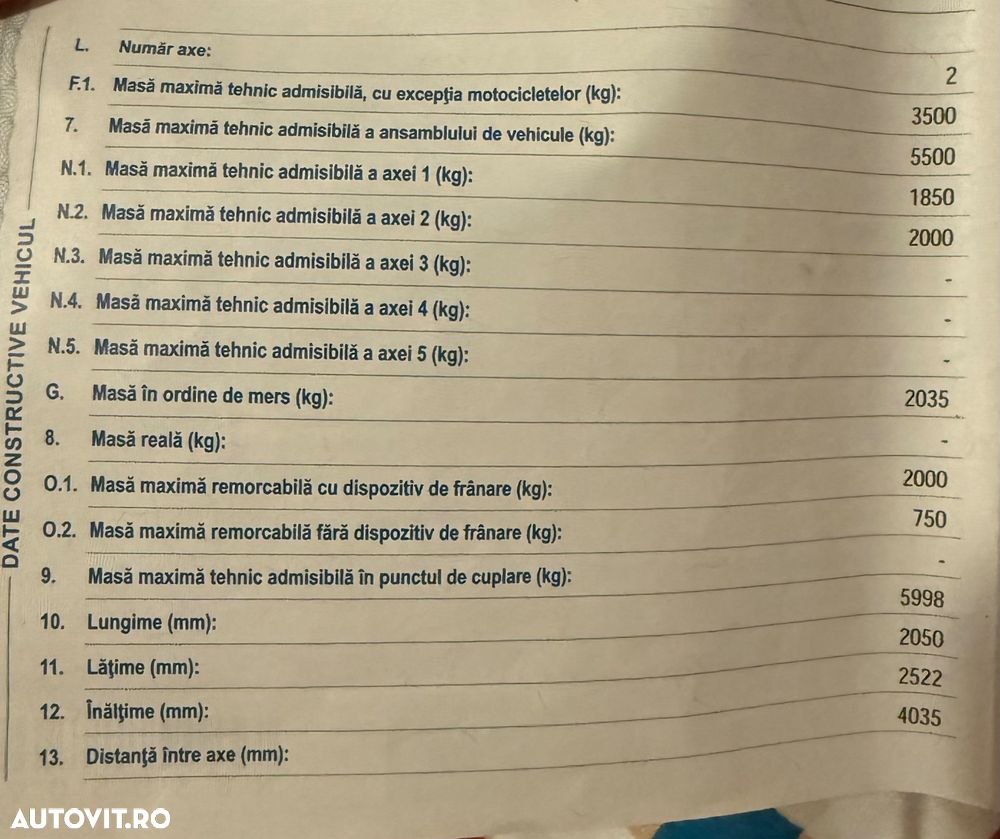 DATE CONSTRUCTIVE VEHICUL
L. Număr axe: 2
F.1. Masă maximă tehnic admisibilă, cu excepţia motocicletelor (kg): 3500
7. Masă maximă tehnic admisibilă a ansamblului de vehicule (kg): 5500
N.1. Masă maximă tehnic admisibilă a axei 1 (kg): 1850
N.2. Masă maximă tehnic admisibilă a axei 2 (kg): 2000
N.3. Masă maximă tehnic admisibilă a axei 3 (kg): -
N.4. Masă maximă tehnic admisibilă a axei 4 (kg): -
N.5. Masă maximă tehnic admisibilă a axei 5 (kg): -
G. Masă în ordine de mers (kg): 2035
8. Masă reală (kg): -
O.1. Masă maximă remorcabilă cu dispozitiv de frânare (kg): 2000
O.2. Masă maximă remorcabilă fără dispozitiv de frânare (kg): 750
9. Masă maximă tehnic admisibilă în punctul de cuplare (kg): -
10. Lungime (mm): 5998
11. Lăţime (mm): 2050
12. Înălţime (mm): 2522
13. Distanţă între axe (mm): 4035
AUTOVIT.RO